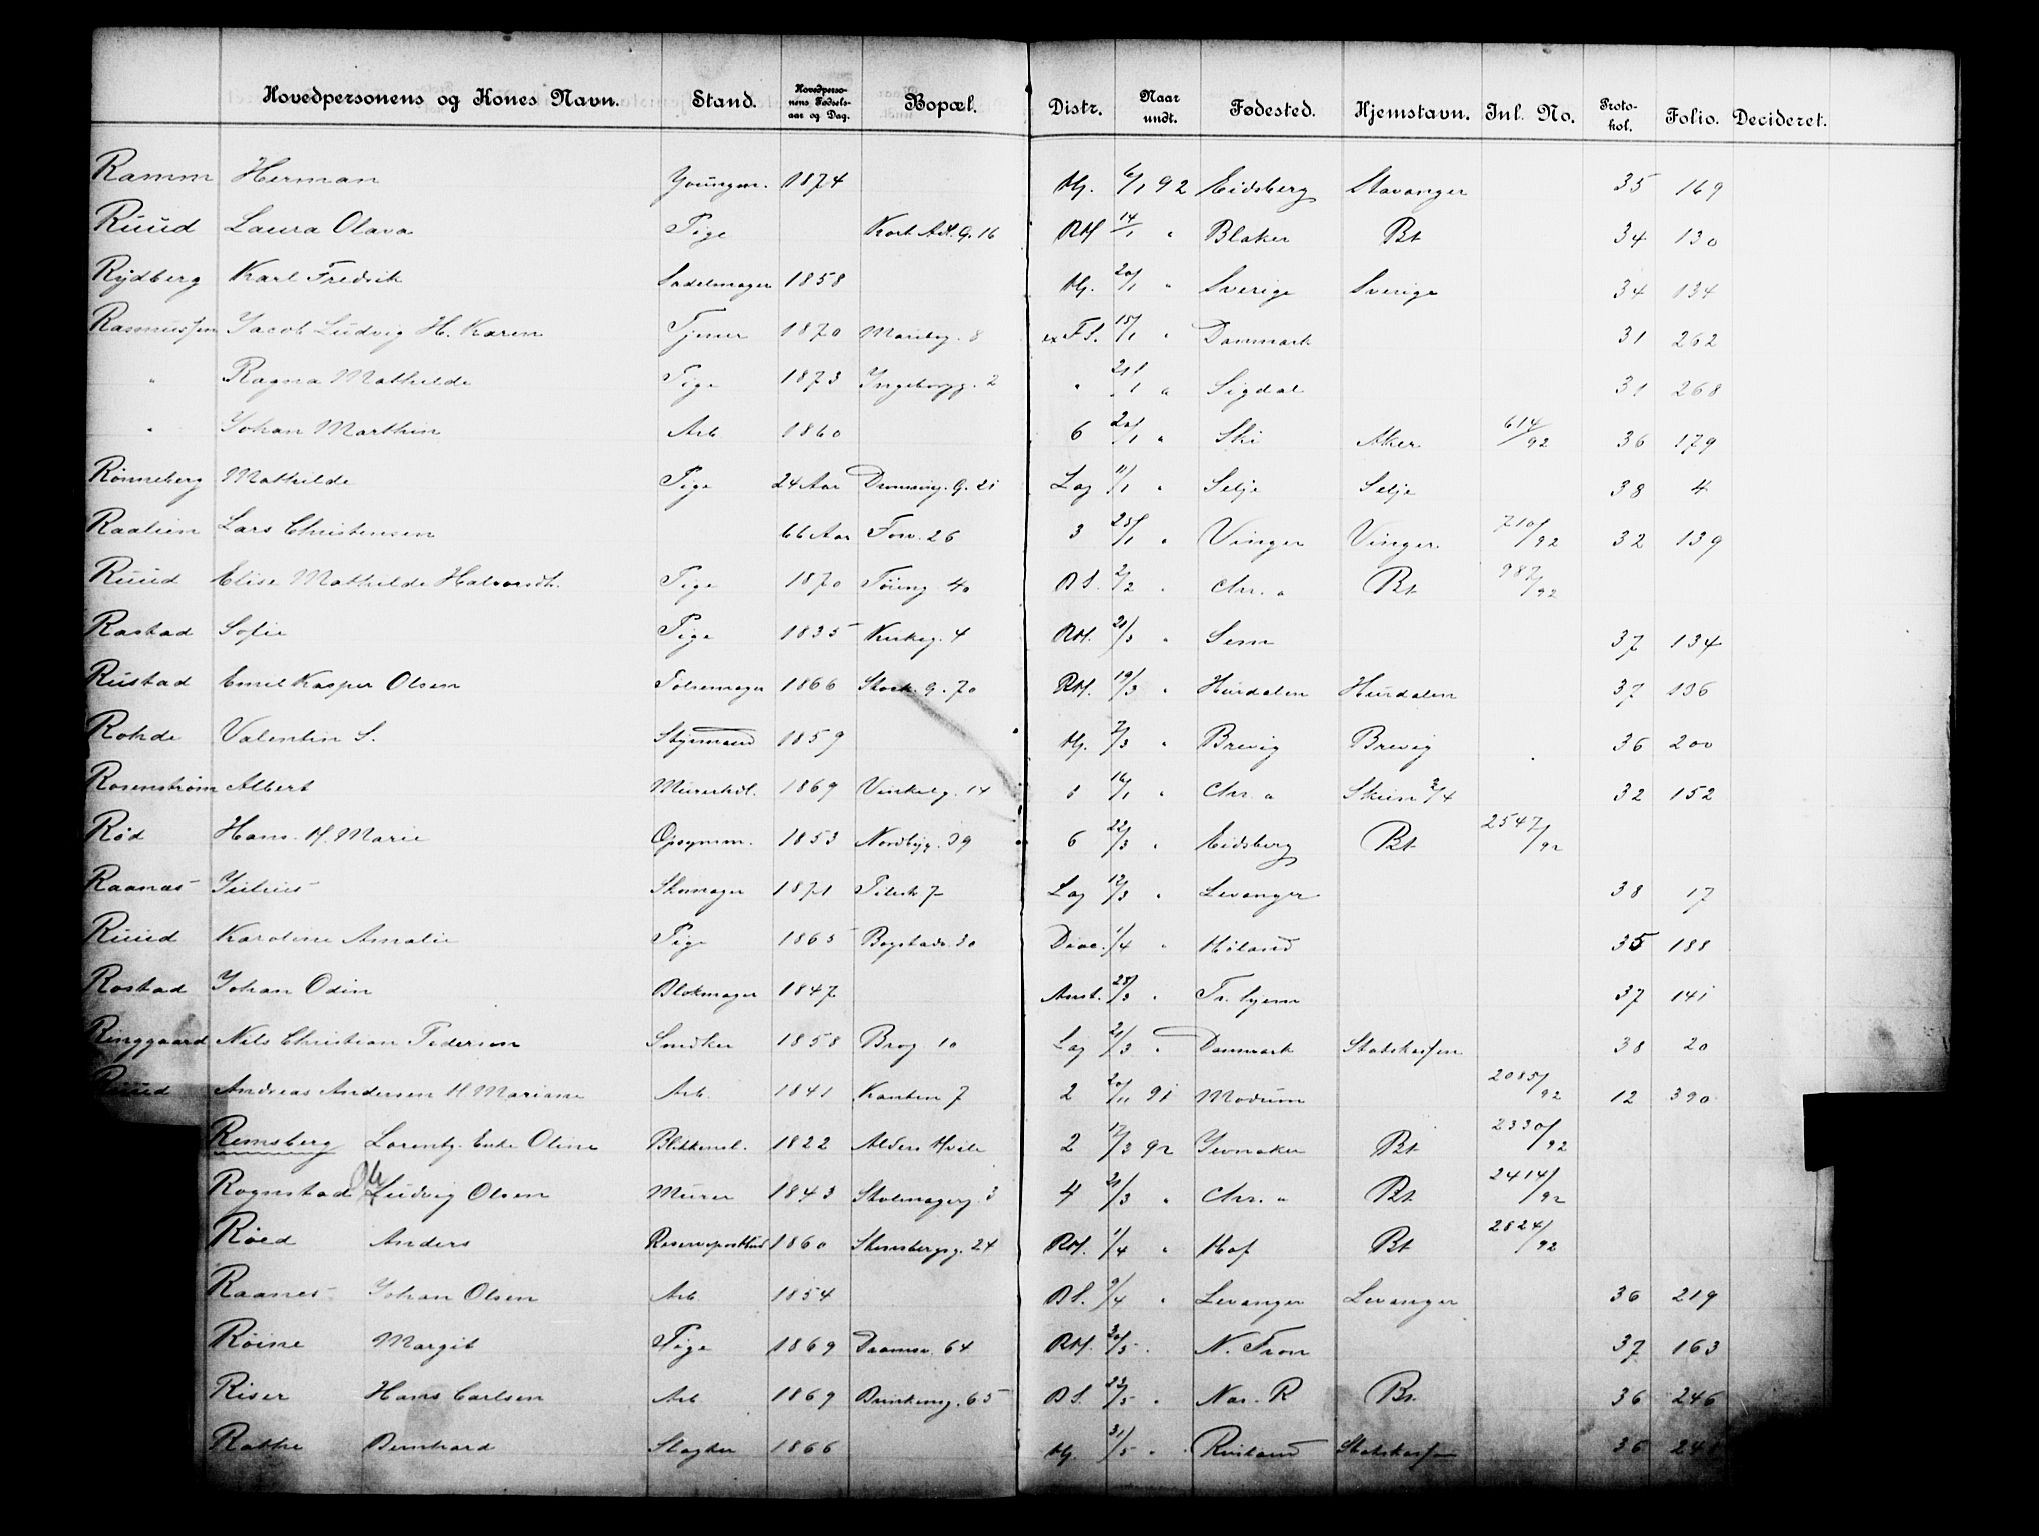 Hovedpersonens og Kones Navn. Stand. Hovedperso-nens Fødsels-aar og Dag. Bopæl. Distr. Naar undt. Fødested. Hjemstavn. Inl. No. Proto-kol. Folio. Decideret.
Ramm Herman Youngm. 1874 Hj. 6/1 92 Eidsberg Stavanger 35 169
Ruud Laura Olava Pige Kort Adl. G. 16 RH 14/1 " Blaker Bt 34 130
Rydberg Karl Fredrik Sadelmager 1858 Hj. 20/1 " Sverige Sverige 34 134
Rasmussen Jacob Ludvig H. Karen Tjener 1870 Maribg. 8 ex FS. 15/1 " Danmark 31 262
" Ragna Mathilde Pige 1873 Ingeborgg. 2 " 21/1 " Sigdal 31 268
" Johan Marthin Arb 1860 6 20/1 " Ski Aker 614/92 36 179
Rønneberg Mathilde Pige 24 Aar Dronning. G. 21 Lag 11/1 " Selje Selje 38 4
Raalien Lars Christensen 66 Aar Fosv. 26 3 25/1 " Vinger Vinger. 710/92 32 139
Ruud Elise Mathilde Halvorsdt. Pige 1870 Tøieng 40 BS. 2/2 " Chr. a Bt 987/92
Rastad Sofie Pige 1835 Kirkeg. 4 RH. 21/3 " Sem 37 134
Rustad Emil Kasper Olsen Pølsemager 1866 Stork. g. 70 RH. 19/3 " Hurdalen Hurdalen 37 136
Rohde Valentin S. Styrmand 1859 Hj. 7/3 " Brevig Brevig 36 200
Rosenstrøm Albert Murerhdl. 1869 Vinkelg. 14 1 16/1 " Chr. a Skien 3/4 32 152
Rød Hans. H. Marie Opsynsm. 1853 Nordbyg. 39 6 22/3 " Eidsberg Bt 2547/92
Raanas Julius Skomager 1871 Pilestr 7 Lag 12/3 " Levanger 38 17
Ruud Karoline Amalie Pige 1865 Bogstadv. 30 Diac. 1/4 " Høland 35 188
Rostad Johan Odin Blokmager 1847 Anst. 28/3 " Tr. hjem 37 141
Ringgaard Nils Christian Pedersen Snedker 1858 Brog 10 Lag 21/3 " Danmark Statskassen 38 20
Ruud Andreas Andersen H Mariane Arb. 1841 Kanten 7 2 20/11 91 Modum 2085/92 12 390
Remsberg Lorentz. Enke Oline Blikkensl. 1822 Alders Hvile 2 17/3 92 Jevnaker Bt 2330/92
Rognstad Ole Ludvig Olsen Murer 1843 Stolmagerg. 3 4 21/3 " Chr. a Bt 2414/92
Røed Anders Reservepostbud 1860 Stensbergsg. 24 RH. 1/4 " Hof Bt 2824/92
Raanes Johan Olsen Arb. 1854 BS. 9/4 " Levanger Levanger 36 219
Røine Margit Pige 1869 Drammv. 64 RH. 30/5 " N. Fron 37 163
Riser Hans Carlsen Arb 1869 Brinkeng. 65 BS. 23/5 " Nas. R Bt. 36 246
Rathe Bernhard Slagter 1866 Hj. 31/5 " Rusland Statskassen 36